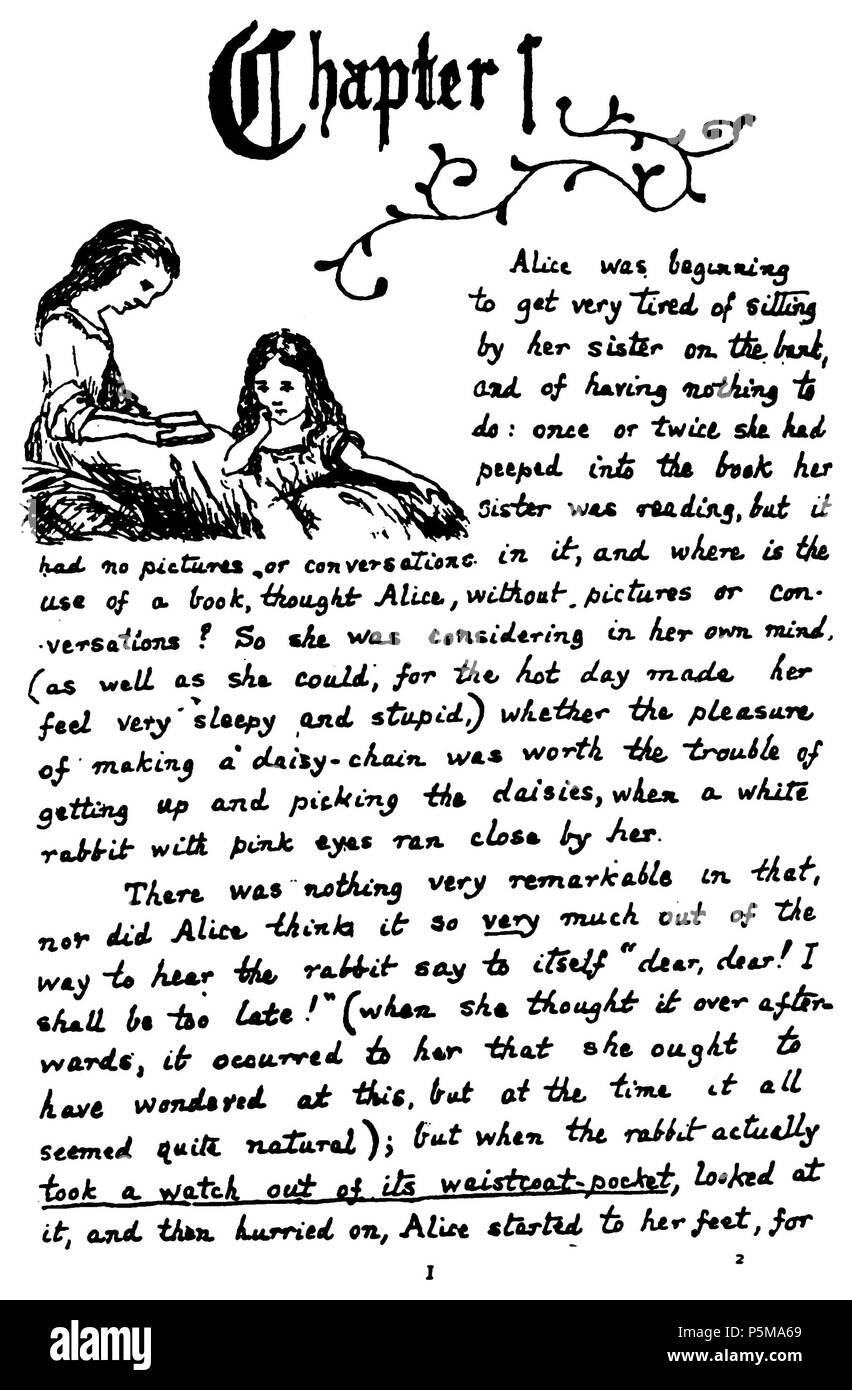 Chapter I
Alice was beginning
to get very tired of sitting
by her sister on the bank,
and of having nothing to
do: once or twice she had
peeped into the book her
sister was reading, but it
had no pictures or conversations in it, and where is the
use of a book, thought Alice, without pictures or con-
-versations? So she was considering in her own mind,
(as well as she could, for the hot day made her
feel very sleepy and stupid,) whether the pleasure
of making a daisy-chain was worth the trouble of
getting up and picking the daisies, when a white
rabbit with pink eyes ran close by her.
There was nothing very remarkable in that,
nor did Alice think it so very much out of the
way to hear the rabbit say to itself "dear, dear! I
shall be too late!" (when she thought it over after-
wards, it occurred to her that she ought to
have wondered at this, but at the time it all
seemed quite natural); but when the rabbit actually
took a watch out of its waistcoat-pocket, looked at
it, and then hurried on, Alice started to her feet, for
1
2
alamy
Image ID: P5MA69
www.alamy.com